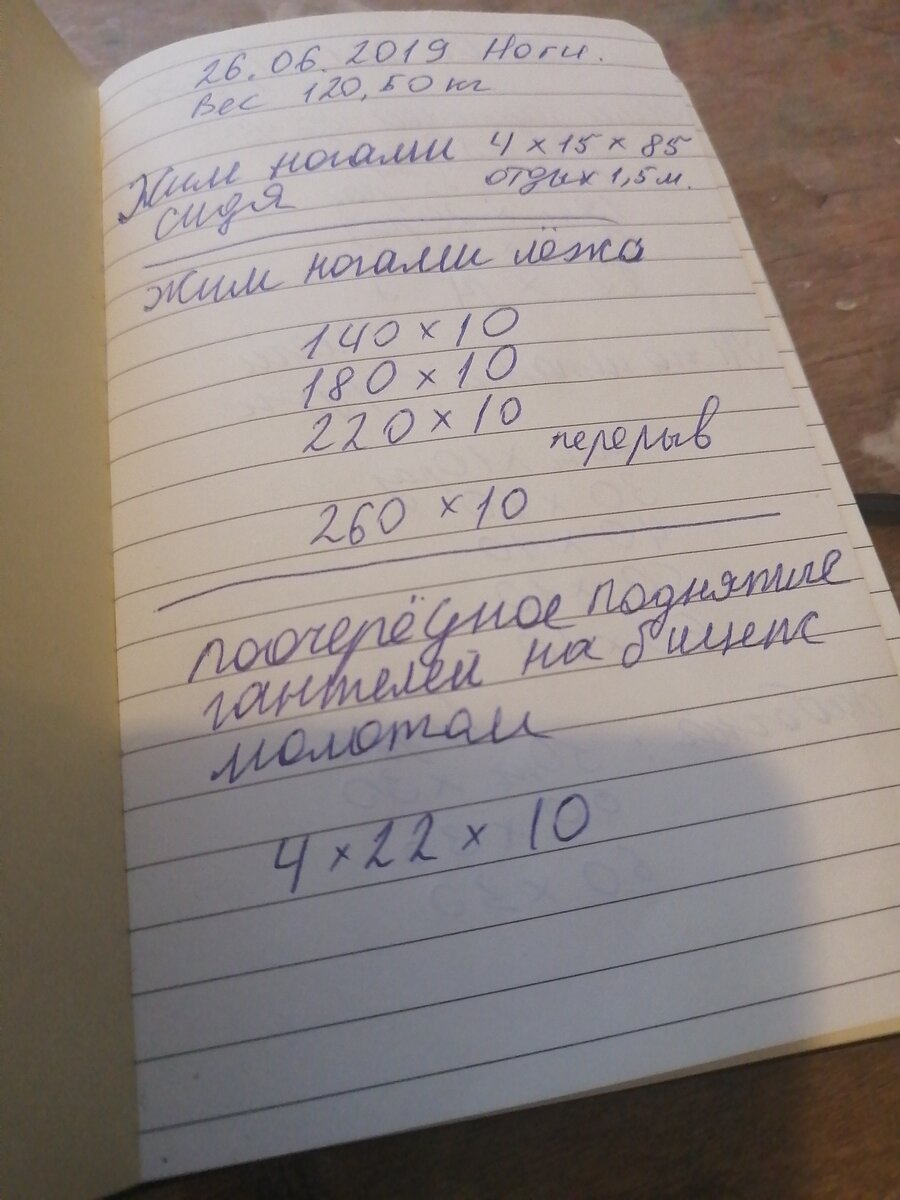 26.06.2019 Ноги.
Вес 120,50 кг
Жим ногами 4 х 15 х 85
сидя отдых 1,5 м.
Жим ногами лёжа
140 х 10
180 х 10
220 х 10
перерыв
260 х 10
поочерёдное поднятие
гантелей на бицепс
молотом
4 х 22 х 10